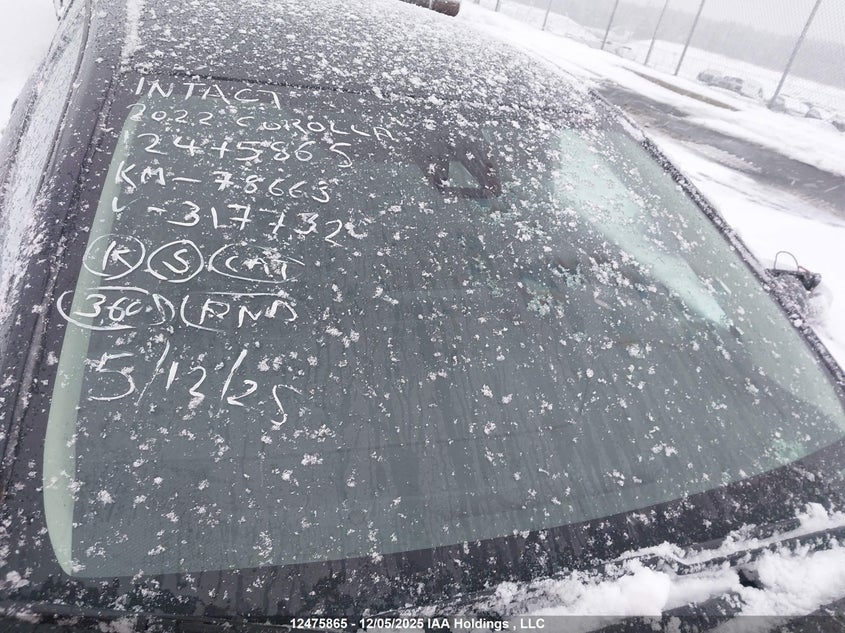 INTACT
2022 COROLLA
2475865
KM-78663
V-317732
K S CAT
360 RND
5/12/25
12475865 - 12/05/2025 IAA Holdings , LLC